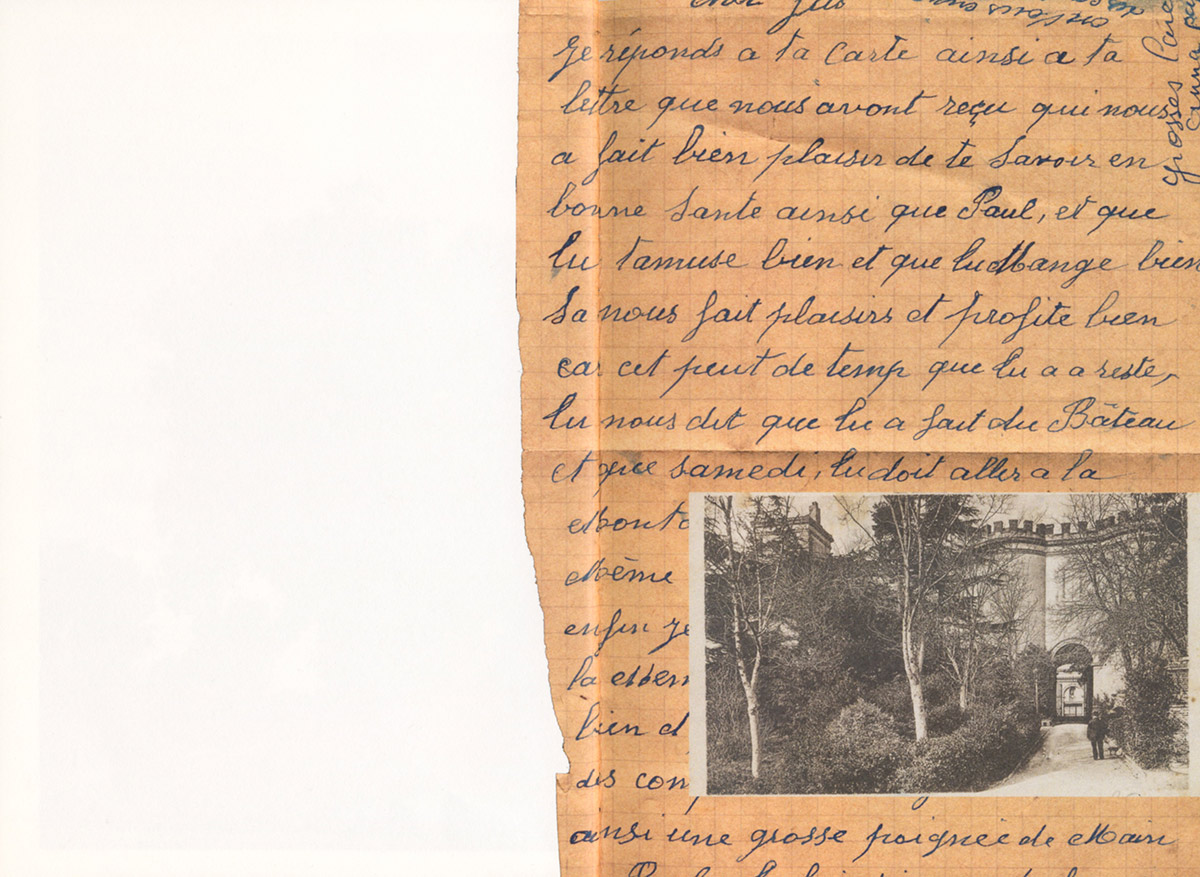 Cher fils
Je réponds a ta Carte ainsi a ta
lettre que nous avont reçu qui nous
a fait bien plaisir de te Savoir en
bonne Sante ainsi que Paul, et que
tu tamuse bien et que tu Mange bien
Sa nous fait plaisirs et profite bien
car cet peut de temp que tu a a reste,
tu nous dit que tu a fait du Bâteau
et que samedi, tu doit aller a la
Monta
Même
enfin je
la
bien
des
ainsi une grosse poignée de Main
grosses